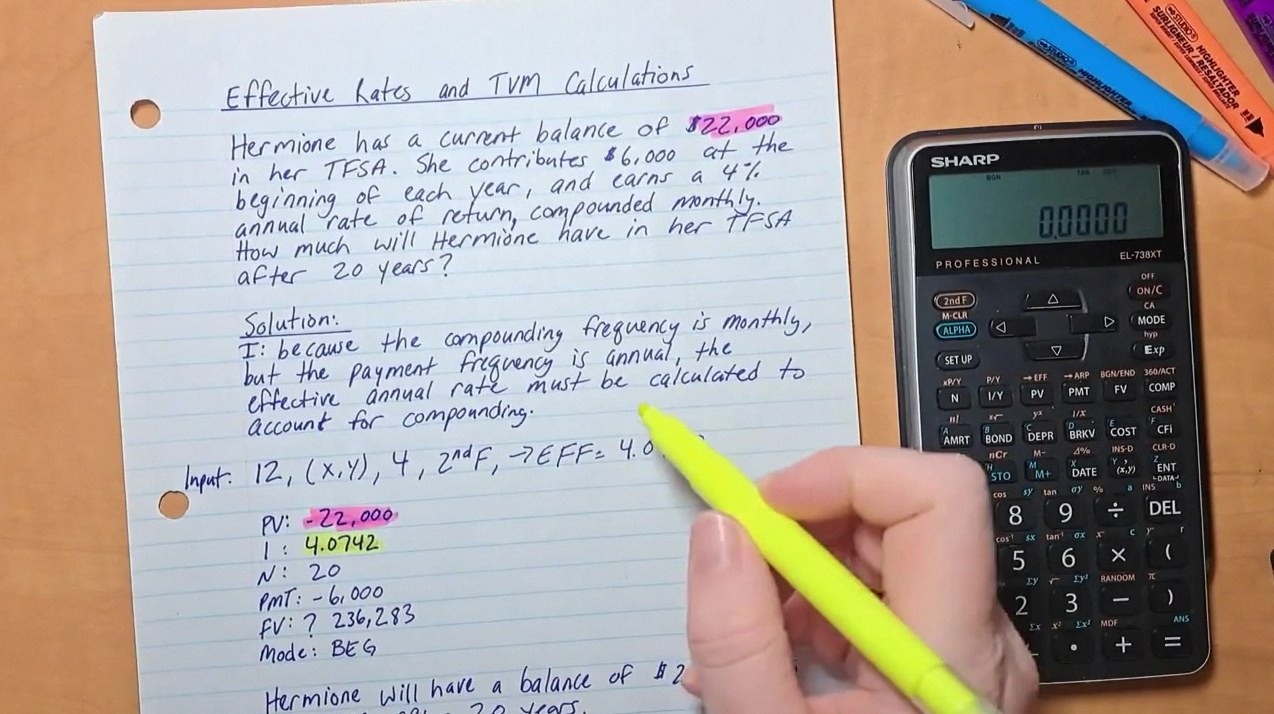 Effective Rates and TVM Calculations
Hermione has a current balance of $22,000
in her TFSA. She contributes $6,000 at the
beginning of each year, and earns a 4%
annual rate of return, compounded monthly.
How much will Hermione have in her TFSA
after 20 years?
Solution:
I: because the compounding frequency is monthly,
but the payment frequency is annual, the
effective annual rate must be calculated to
account for compounding.
Input: 12, (x,y), 4, 2ndF, →EFF= 4.0
PV: -22,000
I : 4.0742
N: 20
PMT: -6,000
FV: ? 236,283
Mode: BEG
Hermione will have a balance of $2
20 years.
STUDIO
HIGHLIGHTER
STUDIO
SURLIGNEUR / RESALTADOR
HIGHLIGHTER
SHARP
BGN
0.0000
PROFESSIONAL EL-738XT
OFF
2ndF ON/C
M-CLR CA
ALPHA MODE
hyp
SET UP Exp
xP/Y P/Y →EFF →APR BGN/END 360/ACT
N I/Y PV PMT FV COMP
n! yˣ 1/X CASH
AMRT BOND DEPR BRKV COST CFi
nCr M- Δ% INS-D CLR-D
STO M+ DATE (x,y) ENT
DATA
cos sy tan σy % a INS b
8 9 ÷ DEL
cos⁻¹ sx tan⁻¹ σx
5 6 × (
Σy Σy² RANDOM π
2 3 − )
Σx x² Σx² MDF ANS
• + =